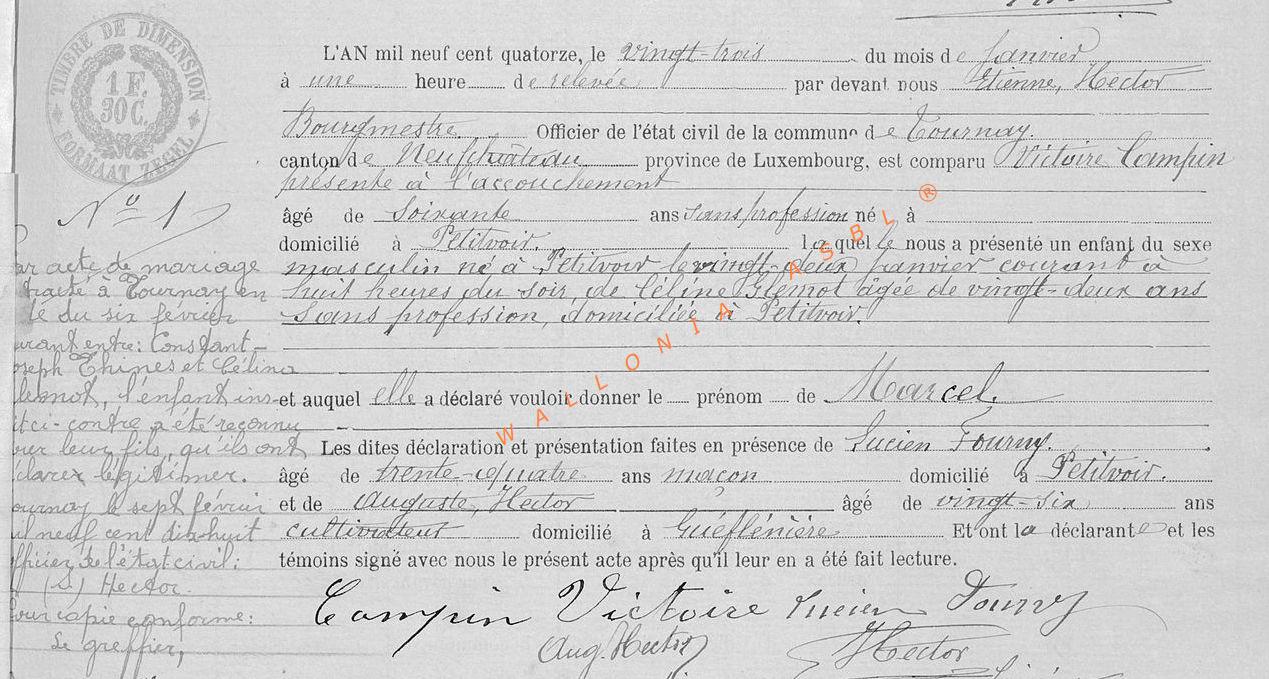 TIMBRE DE DIMENSION
1 F.
30 C.
FORMAAT ZEGEL
L'AN mil neuf cent quatorze, le vingt-trois du mois de Janvier
à une heure de relevée par devant nous Etienne, Hector
Bourgmestre Officier de l'état civil de la commune de Tournay.
canton de Neufchâteau province de Luxembourg, est comparu Victoire Campin
présente à l'accouchement
âgé de Soixante ans sans profession né à
domicilié à Petitvoir. laquelle nous a présenté un enfant du sexe
masculin né à Petitvoir le vingt-deux janvier courant à
huit heures du soir, de Céline Glemot âgée de vingt-deux ans
Sans profession, domiciliée à Petitvoir.
et auquel elle a déclaré vouloir donner le prénom de Marcel.
Les dites déclaration et présentation faites en présence de Lucien Fourny
âgé de trente-quatre ans maçon domicilié à Petitvoir.
et de Auguste, Hector âgé de vingt-six ans
cultivateur domicilié à Guéflénière Et ont la déclarante et les
témoins signé avec nous le présent acte après qu'il leur en a été fait lecture.
Campin Victoire Lucien Fourny
Aug. Hector Hector
No 1
ar acte de mariage
tracté à Tournay en
te du six février
urant entre: Constant-
oseph Thines et Célina
lemot, l'enfant ins-
it ci-contre a été reconnu
our leur fils, qu'ils ont
clarer légitimer.
ournay le sept février
il neuf cent dix-huit
officier de l'état civil:
(s) Hector.
Pour copie conforme:
Le greffier,
WALLONIA ASBL ®